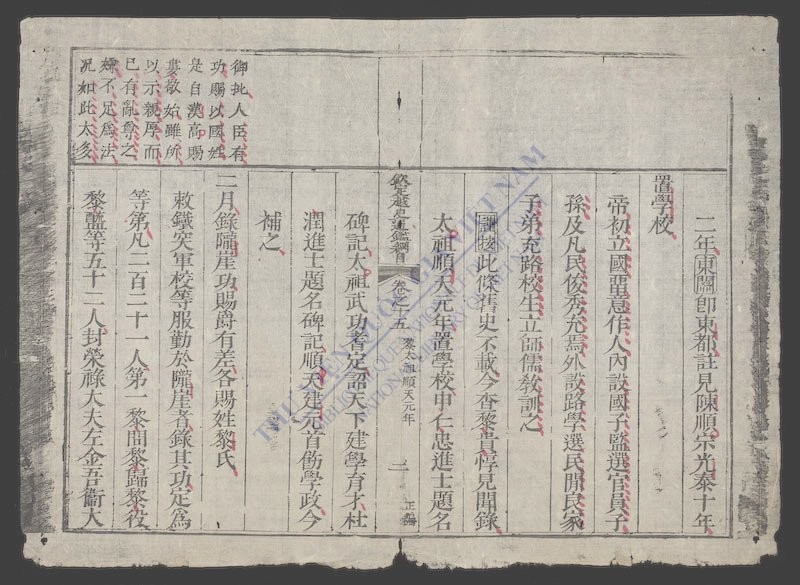 二年東關即東都註見陳順宗光泰十年
置學校
帝初立國畱意作人內設國子監選官員子
孫及凡民俊秀充焉外設路學選民閒良家
子弟充路校生立師儒教訓之
謹按此條舊史不載今查黎貴惇見聞錄
太祖順天元年置學校申仁忠進士題名
欽定越史通鑑綱目
卷之十五
黎太祖順天元年
二
正編
御批人臣有
功賜以國姓
是自漢高賜
婁敬始雖所
以示親厚而
已有亂尊之
嫌不足爲法
况如此太多
碑記太祖武功耆定詔天下建學育才杜
潤進士題名碑記順天建元首勤學政今
補之
二月錄隴崖功賜爵有差各賜姓黎氏
敕鐵突軍校等服勤於隴崖者錄其功定爲
等第凡二百二十一人第一黎問黎歸黎役
黎藍等五十二人封榮祿大夫左金吾衞大
THƯ VIỆN QUỐC GIA VIỆT NAM